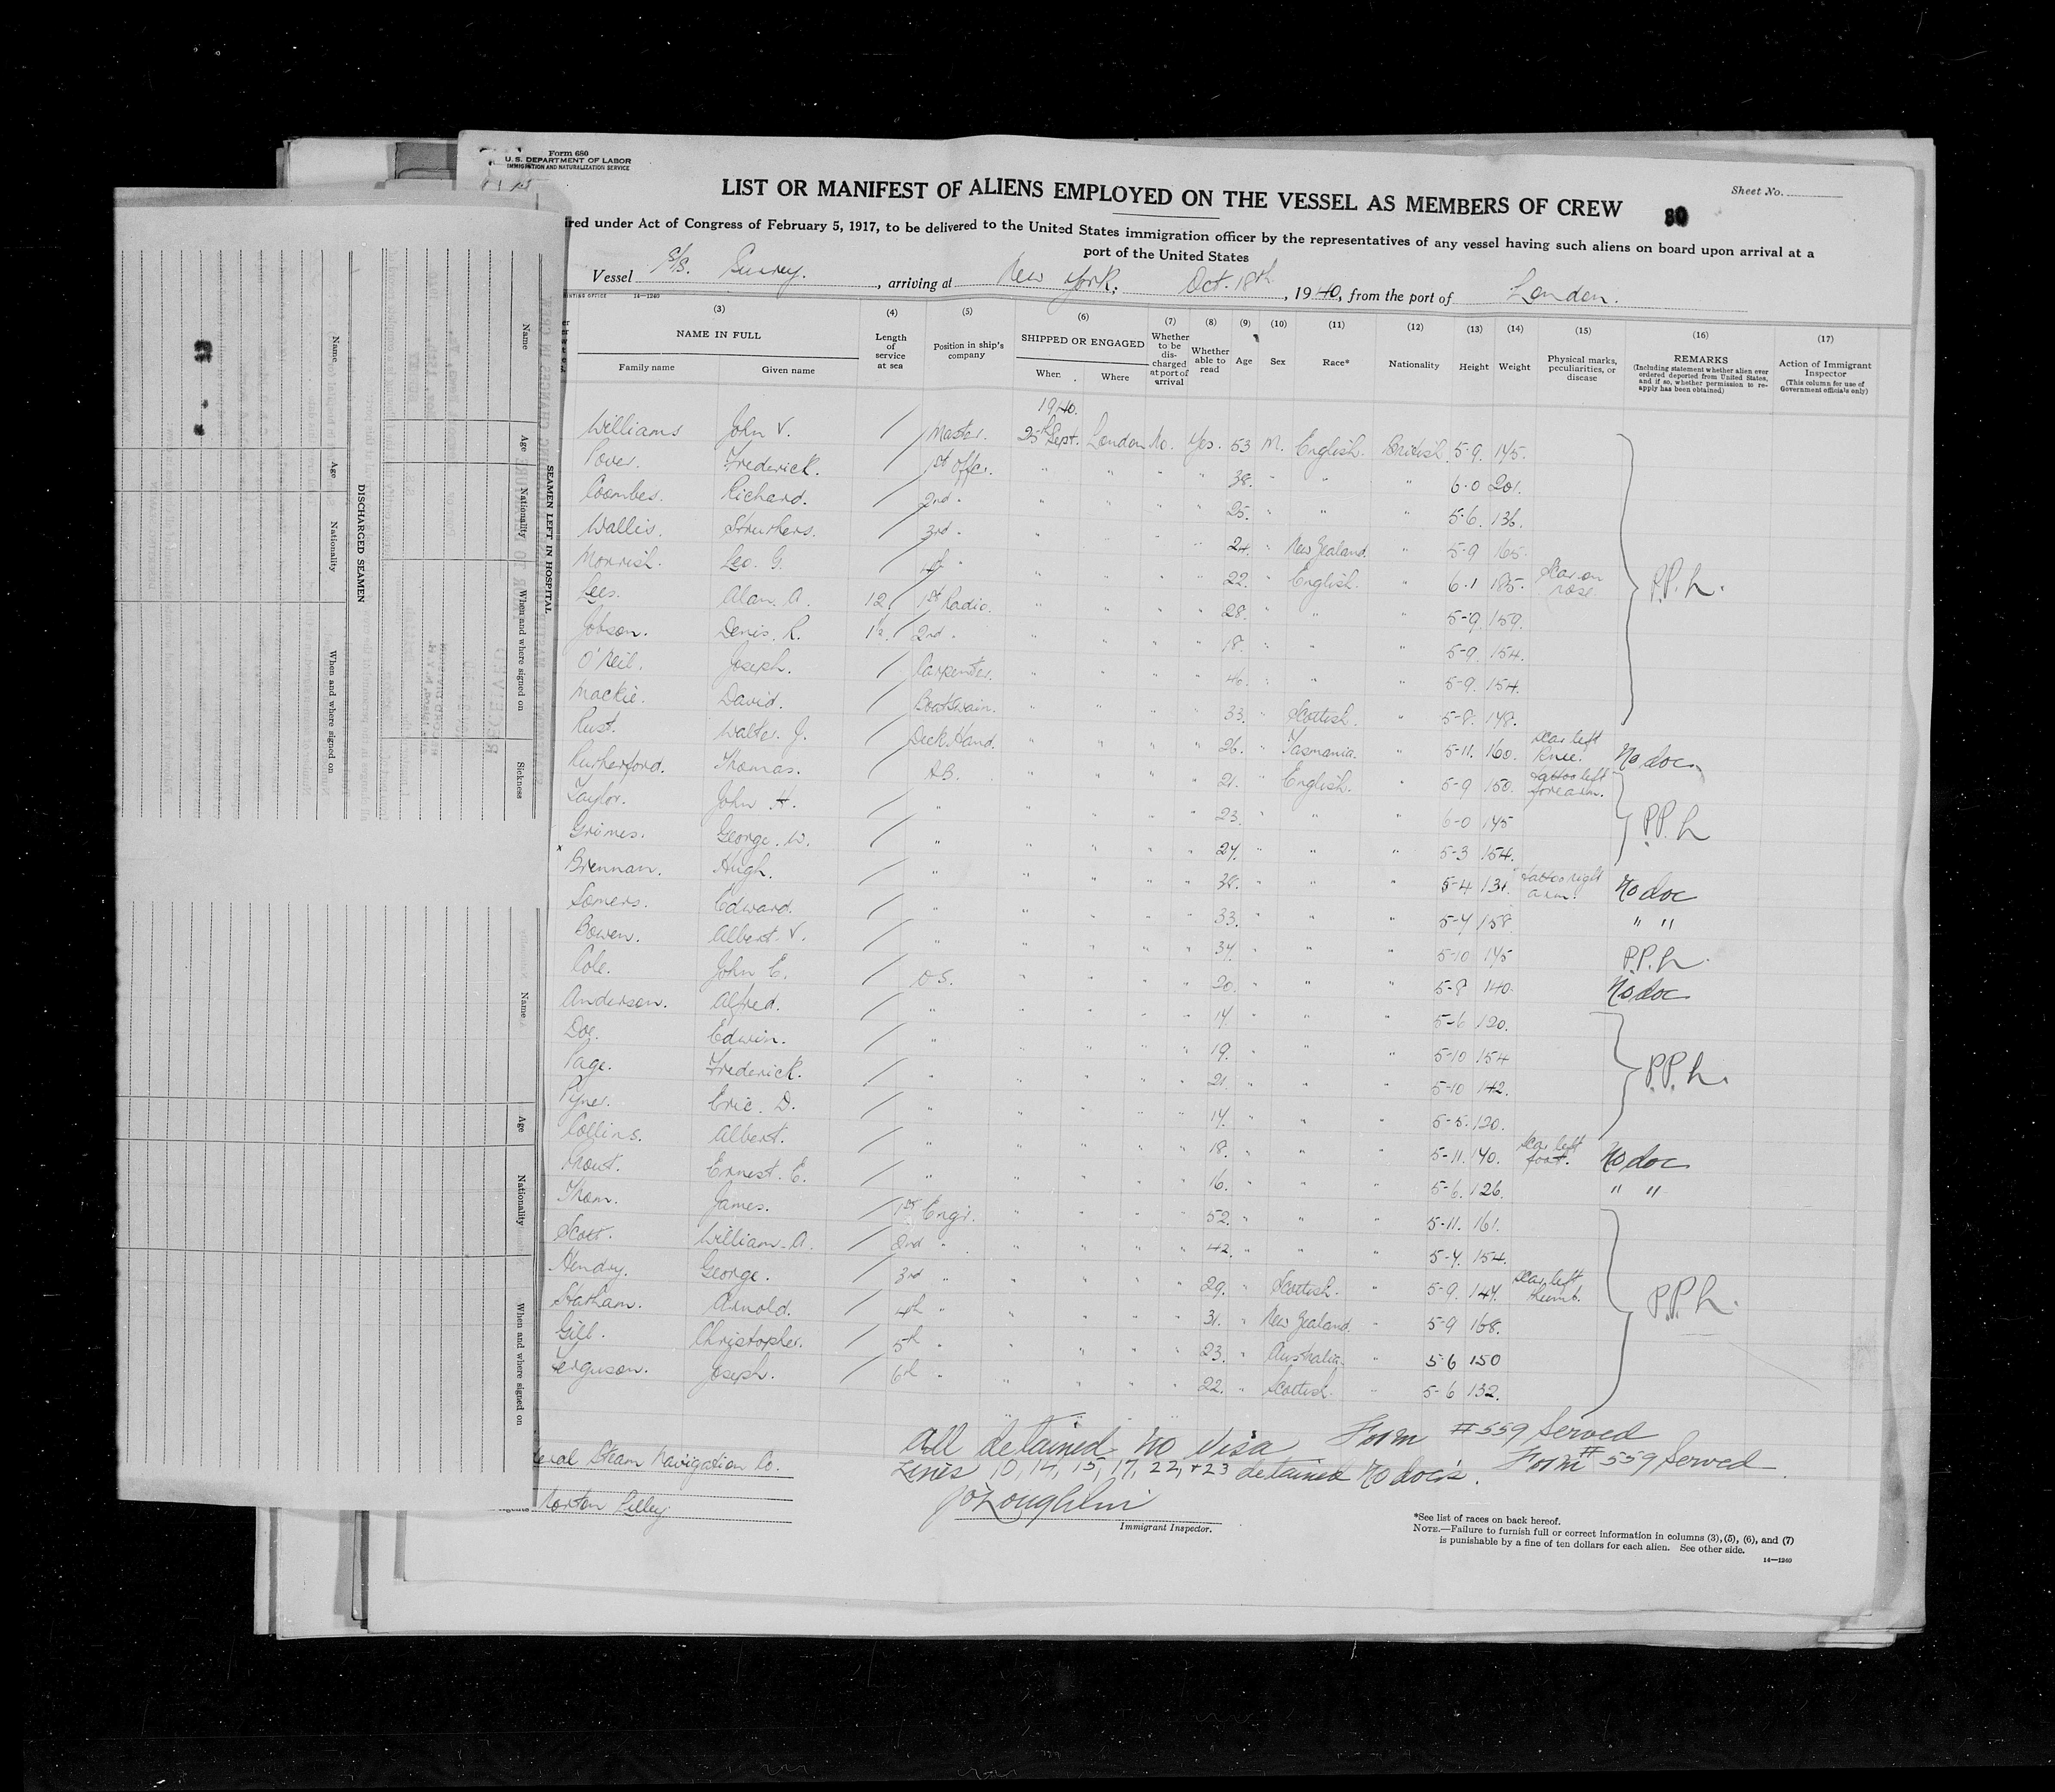 Form 680
U. S. DEPARTMENT OF LABOR
IMMIGRATION AND NATURALIZATION SERVICE
Sheet No.
LIST OR MANIFEST OF ALIENS EMPLOYED ON THE VESSEL AS MEMBERS OF CREW
80
ired under Act of Congress of February 5, 1917, to be delivered to the United States immigration officer by the representatives of any vessel having such aliens on board upon arrival at a
port of the United States
Vessel S/S. Surrey. , arriving at New York; Oct. 18th , 1940, from the port of London.
14—1240
(3) (4) (5) (6) (7) (8) (9) (10) (11) (12) (13) (14) (15) (16) (17)
NAME IN FULL Length of service at sea Position in ship's company SHIPPED OR ENGAGED Whether to be discharged at port of arrival Whether able to read Age Sex Race* Nationality Height Weight Physical marks, peculiarities, or disease REMARKS (Including statement whether alien ever ordered deported from United States, and if so, whether permission to reapply has been obtained) Action of Immigrant Inspector (This column for use of Government officials only)
Family name Given name When Where
1940.
Williams John V. / Master. 25th Sept. London No. Yes. 53 M. English. British. 5-9. 145.
Pover. Frederick. / 1st Offcr. " " " " 38. " " " 6-0 201.
Coombes. Richard. / 2nd " " " " " 25. " " " 5-6. 136.
Wallis. Struthers. / 3rd " " " " " 24. " New Zealand. " 5-9 165.
Morrish. Leo. G. / 4th " " " " " 22. " English. " 6-1 185. Scar on nose. P.P.h.
Lees. Alan. A. 12 / 1st Radio. " " " " 28. " " " 5-9. 159.
Jobson. Denis. R. 1½. / 2nd " " " " " 18. " " " 5-9. 154.
O'Neil. Joseph. / Carpenter. " " " " 46. " " " 5-9. 154.
Mackie. David. / Boatswain. " " " " 33. " Scottish. " 5-8. 148.
Rust. Walter. J. / Deck Hand. " " " " 26. " Tasmania. " 5-11. 160. Scar left Knee. No doc.
Rutherford. Thomas. / A.B. " " " " 21. " English. " 5-9 150. tattoo left forearm.
Taylor. John H. / " " " " " 23. " " " 6-0 145 P.P.h
Grimes. George. W. / " " " " " 27. " " " 5-3 154.
x Brennan. Hugh. / " " " " " 38. " " " 5-4 131. tattoo right arm. No doc
Somers. Edward. / " " " " " 33. " " " 5-7 158. " "
Bowen. Albert. V. / " " " " " 37. " " " 5-10 145 P.P.h.
Cole. John E. / O.S. " " " " 20. " " " 5-8 140. No doc
Anderson. Alfred. / " " " " " 17. " " " 5-6 120.
Doe. Edwin. / " " " " " 19. " " " 5-10 154
Page. Frederick. / " " " " " 21. " " " 5-10 142. P.P.h.
Pyner. Eric. D. / " " " " " 17. " " " 5-5. 120.
Collins. Albert. / " " " " " 18. " " " 5-11. 140. Scar left foot. No doc
Ernest. E. / " " " " " 16. " " " 5-6. 126. " "
Thom. James. / 1st Engr. " " " " 52. " " " 5-11. 161.
Scott. William. A. / 2nd " " " " " 42. " " " 5-7. 154.
Hendry. George. / 3rd " " " " " 29. " Scottish. " 5-9. 147. Scar left thumb. P.P.h.
Statham. Arnold. / 4th " " " " " 31. " New Zealand. " 5-9 168.
Gill. Christopher. / 5th " " " " " 23. " Australia. " 5-6 150
Ferguson. Joseph. / 6th " " " " " 22. " Scottish. " 5-6 132.
All detained no visa Form #559 Served
Lines 10, 14, 15, 17, 22, + 23 detained No docs. Form #559 Served
eral Steam Navigation Co.
Norton Lilley
J O'Loughlin
Immigrant Inspector.
*See list of races on back hereof.
NOTE.—Failure to furnish full or correct information in columns (3), (5), (6), and (7)
is punishable by a fine of ten dollars for each alien. See other side.
14—1240
SEAMEN LEFT IN HOSPITAL
Name Age Nationality When and where signed on Sickness
DISCHARGED SEAMEN
Name Age Nationality When and where signed on
Name Age Nationality When and where signed on